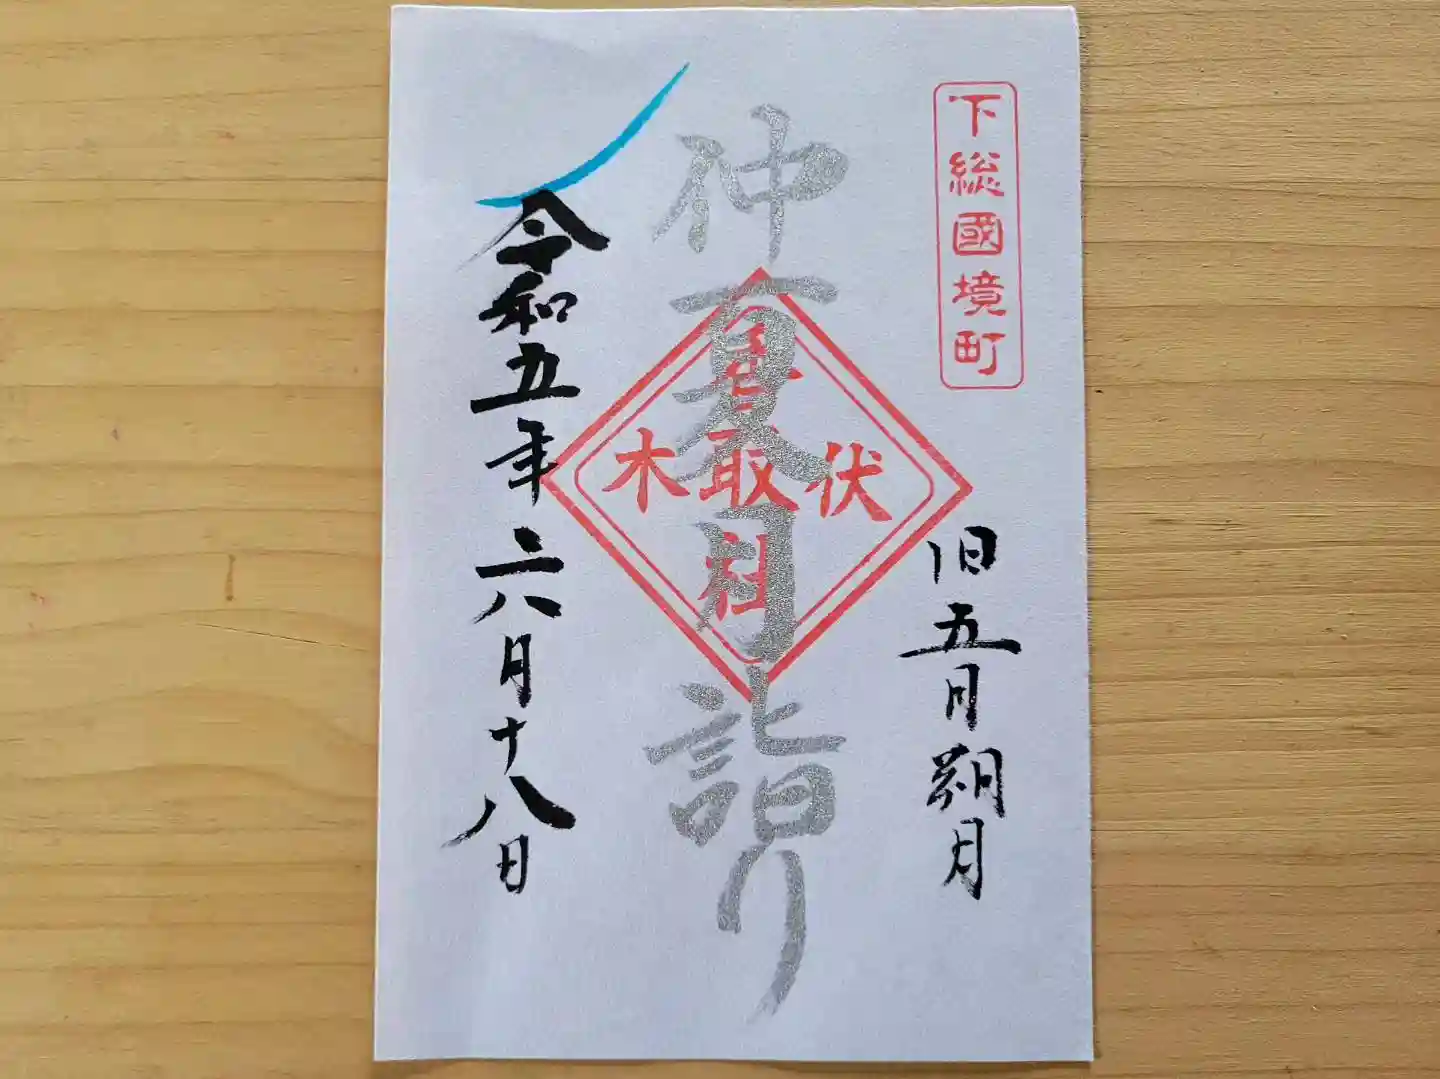 下総國境町
旧五月朔月
仲夏月詣り
香取社
伏木
令和五年六月十八日